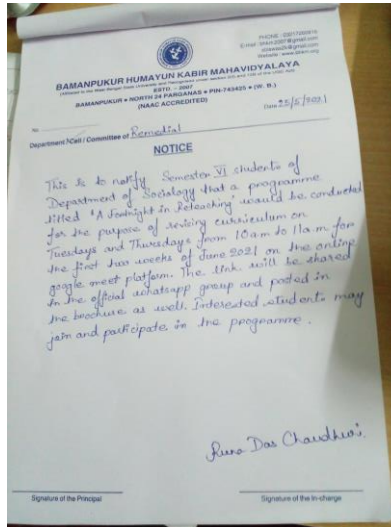 BAMANPUKUR HUMAYUN KABIR MAHAVIDYALAYA
ESTD. - 2007
BAMANPUKUR • NORTH 24 PARGANAS • PIN-743425 • (W. B.)
(NAAC ACCREDITED)
No
Date 25/5/2021
Department / Cell / Committee of Remedial
NOTICE
This is to notify Semester VI students of
Department of Sociology that a programme
titled 'A Fortnight in Reteaching' would be conducted
for the purpose of revising curriculum on
Tuesdays and Thursdays from 10am to 11a.m. for
the first two weeks of June 2021 on the online
google meet platform. The link will be shared
in the official whatsapp group and posted in
the brochure as well. Interested students may
join and participate in the programme.
Runa Das Chaudhuri.
Signature of the Principal
Signature of the In-charge